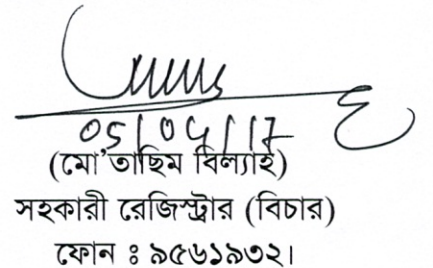 05/04/17
(মো'তাছিম বিল্যাহ)
সহকারী রেজিস্ট্রার (বিচার)
ফোন ঃ ৯৫৬১৯৩২।